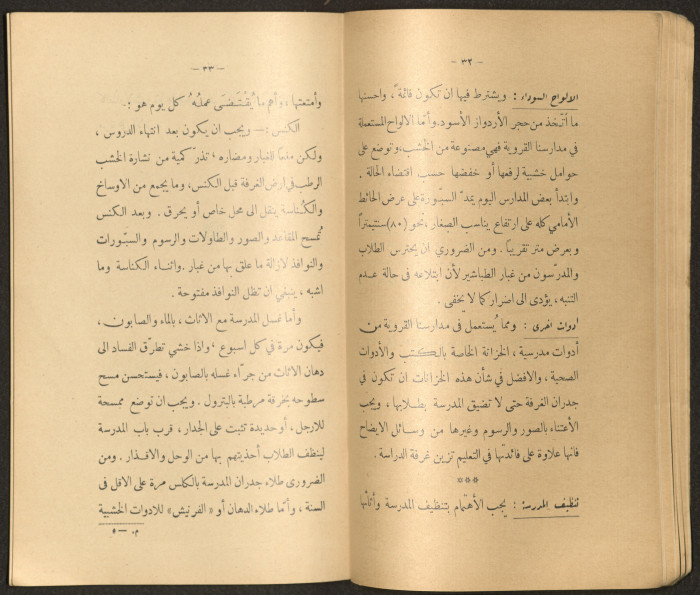 - ٣٢ -
الالواح السوداء : ويشترط فيها ان تكون قائمة ، واحسنها
ما اتّخذ من حجر الأردواز الأسود . وأمّا الالواح المستعملة
في مدارسنا القروية فهي مصنوعة من الخشب ، وتوضع على
حوامل خشبية لرفعها أو خفضها حسب اقتضاء الحالة .
وابتدأ بعض المدارس اليوم يمدّ السبّورة على عرض الحائط
الأمامي كله على ارتفاع يناسب الصغار ، نحو (٨٠) سنتيمتراً
وبعرض متر تقريباً . ومن الضروري ان يحترس الطلاب
والمدرّسون من غبار الطباشير لأن ابتلاعه في حالة عدم
التنبه ، يؤدى الى اضرار كما لا يخفى .
ادوات اخرى : ومما يُستعمل في مدارسنا القروية من
أدوات مدرسية ، الخزانة الخاصة بالكتب والأدوات
الصحية ، والافضل في شأن هذه الخزانات ان تكون في
جدران الغرفة حتى لا تضيق المدرسة بطلابها ، ويجب
الأعتناء بالصور والرسوم وغيرها من وسائل الايضاح
فانها علاوة على فائدتها في التعليم تزين غرفة الدراسة .
***
تنظيف المدرسة : يجب الأهتمام بتنظيف المدرسة وأثاثها
- ٣٣ -
وأمتعتها ، وأهم ما يُقْتَضَى عملهُ كل يوم هو :-
الكنس :— ويجب ان يكون بعد انتهاء الدروس ،
ولكن منعاً للغبار ومضاره ، تذرّ كمية من نشارة الخشب
الرطب في ارض الغرفة قبل الكنس ، وما يجمع من الاوساخ
والكُناسة ينقل الى محل خاص أو يحرق . وبعد الكنس
تُمسح المقاعد والصور والطاولات والرسوم والسبّورات
والنوافذ لازالة ما علق بها من غبار . واثناء الكناسة وما
اشبه ، ينبغي ان تظل النوافذ مفتوحة .
وأما غسل المدرسة مع الاثاث ، بالماء والصابون ،
فيكون مرة في كل اسبوع ، واذا خشي تطرّق الفساد الى
دهان الاثاث من جرّاء غسله بالصابون ، فيستحسن مسح
سطوحه بخرقة مرطبة بالبترول . ويجب ان توضع ممسحة
للارجل ، أو حديدة تثبت على الجدار ، قرب باب المدرسة
لينظف الطلاب أحذيتهم بها من الوحل والاقذار . ومن
الضرورى طلاء جدران المدرسة بالكلس مرة على الاقل فى
السنة ، وأمّا طلاء الدهان أو « الفرنيش » للادوات الخشبية
م . — ٥